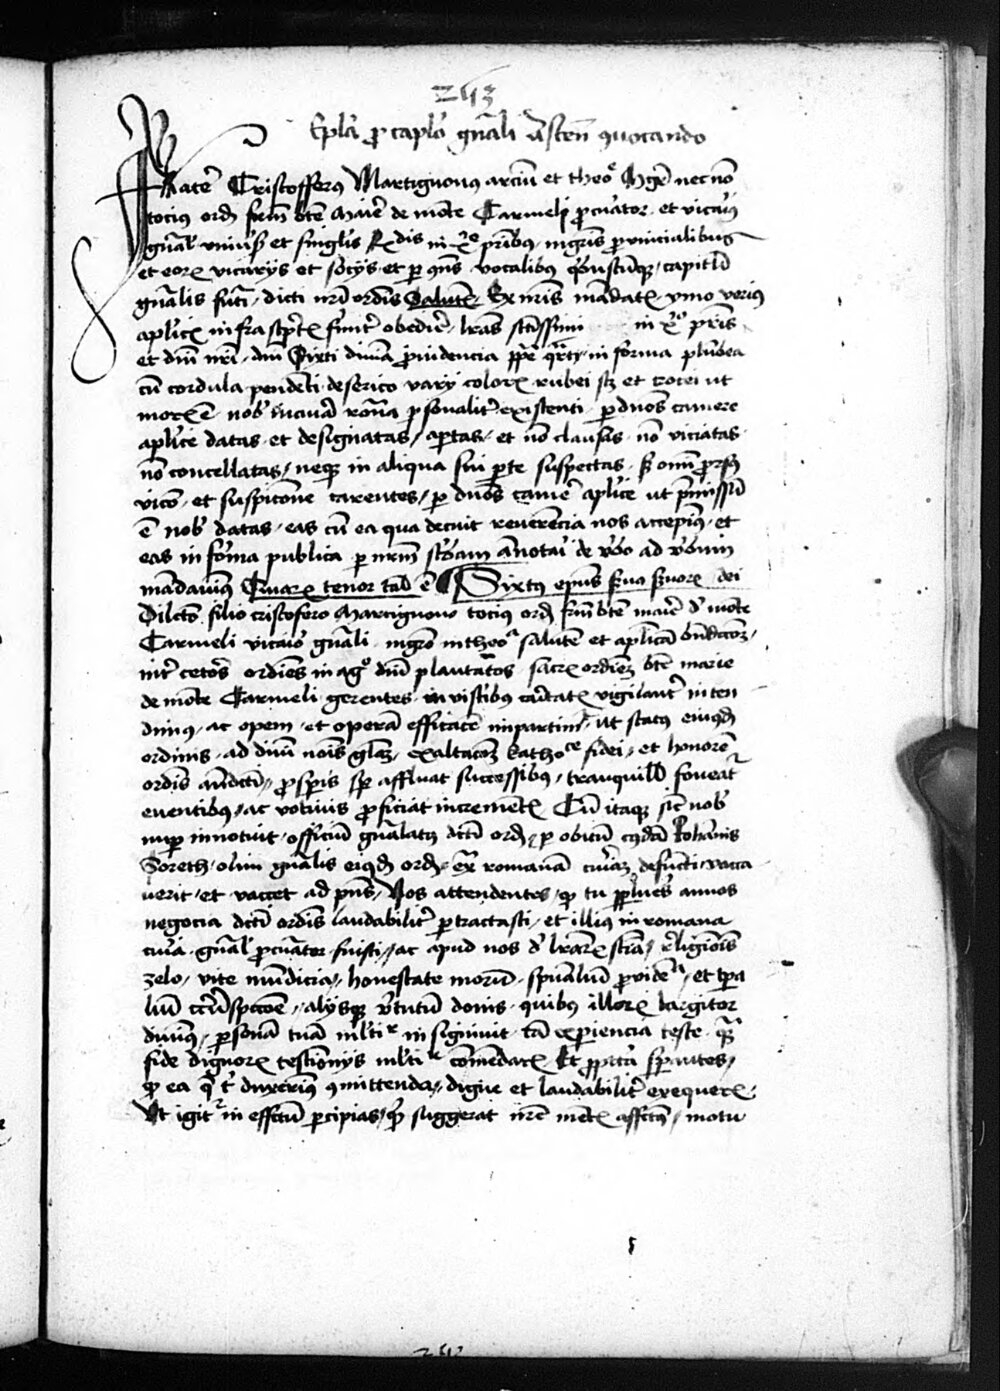 243
Epla pro caplo gnali Asten quocando
Frater Cristofferus Martignonus arcium et theo. Mgr necno
tocius ord frum bte Marie de monte Carmeli procurator et vicarius
gnal. vniuersis et singlis Rdis in xo pribus mgris prouincialibus
et eorum vicarijs et socijs et per qns vocalibus quibuscumque capitli
gnalis futi dicti nri ordis Salute Ex nris mandatis ymo verius
aplicis infrascptis firmiter obedire lras sctissimi in xo pris
et dni nri dni Sixti diuina prouidencia ppe qrti in forma plumbea
cum cordula pendeti de serico varij coloris rubei scz et crocei ut
moris e nob in curia rona personaliter existenti per duos camere
aplice datas et designatas apertas et no clausas no viciatas
no concellatas neque in aliqua sui parte suspectas sed omni prorsus
vicio et suspicione carentes per duos came aplice ut premissum
e nob datas eas cum ea qua decuit reuerencia nos accepimus et
eas in forma publica per nrm scribam annotari de verbo ad verbum
mandauimus Quarum tenor talis e Sixtus epus seruus seruorum dei
Dilecto filio cristofero Martignono tocius ord frum bte marie de monte
Carmeli vicario gnali mgro in theo salute et aplicam bndictionem
inter ceteros ordines in agro dni plantatos sacrum ordinem bte marie
de monte Carmeli gerentes in visceribus caritatis vigilanter inten
dimus ac opem et operam efficacem impartimur ut status eiusdem
ordinis ad diuini nois gloriam exaltacionem katholice fidei et honorem
ordis antedicti prosperis semper affluat successibus tranquillis foueatur
euentibus ac votiuis proficiat incrementis Cum itaque sicut nob
nuper innotuit officium gnalatus dicti ord per obitum quondam Johannis
Soreth olim gnalis eiusdem ord extra romanam curiam defuncti vaca
uerit et vacet ad pns Nos attendentes quod tu plures annos
negocia dicti ordis laudabiliter pertractasti et illius in romana
curia gnal procurator fuisti ac apud nos de lrarum scia religionis
zelo vite mundicia honestate morum spualium prouidencia et tpa
lium circumspectione alijsque virtutum donis quibus illorum largitor
dominus personam tuam multipliciter insigniuit tam experiencia teste quam
fide dignorum testimonijs multipliciter comendaris Et propterea sperantes
quod ea que tibi duxerimus committenda digne et laudabiliter exequeris
Ut igitur in effectum percipias quod suggerat nre mentis affectus motu